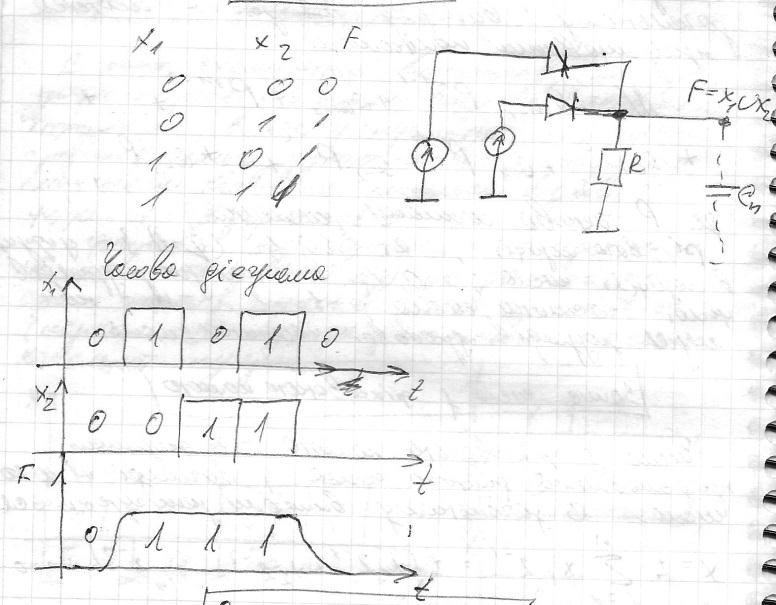 x₁ x₂ F
0 0 0
0 1 1
1 0 1
1 1 1
F = x₁ ∪ x₂
R
Cн
Часова діаграма
x₁
0 1 0 1 0
t
x₂
0 0 1 1
t
F 1
0 1 1 1
t